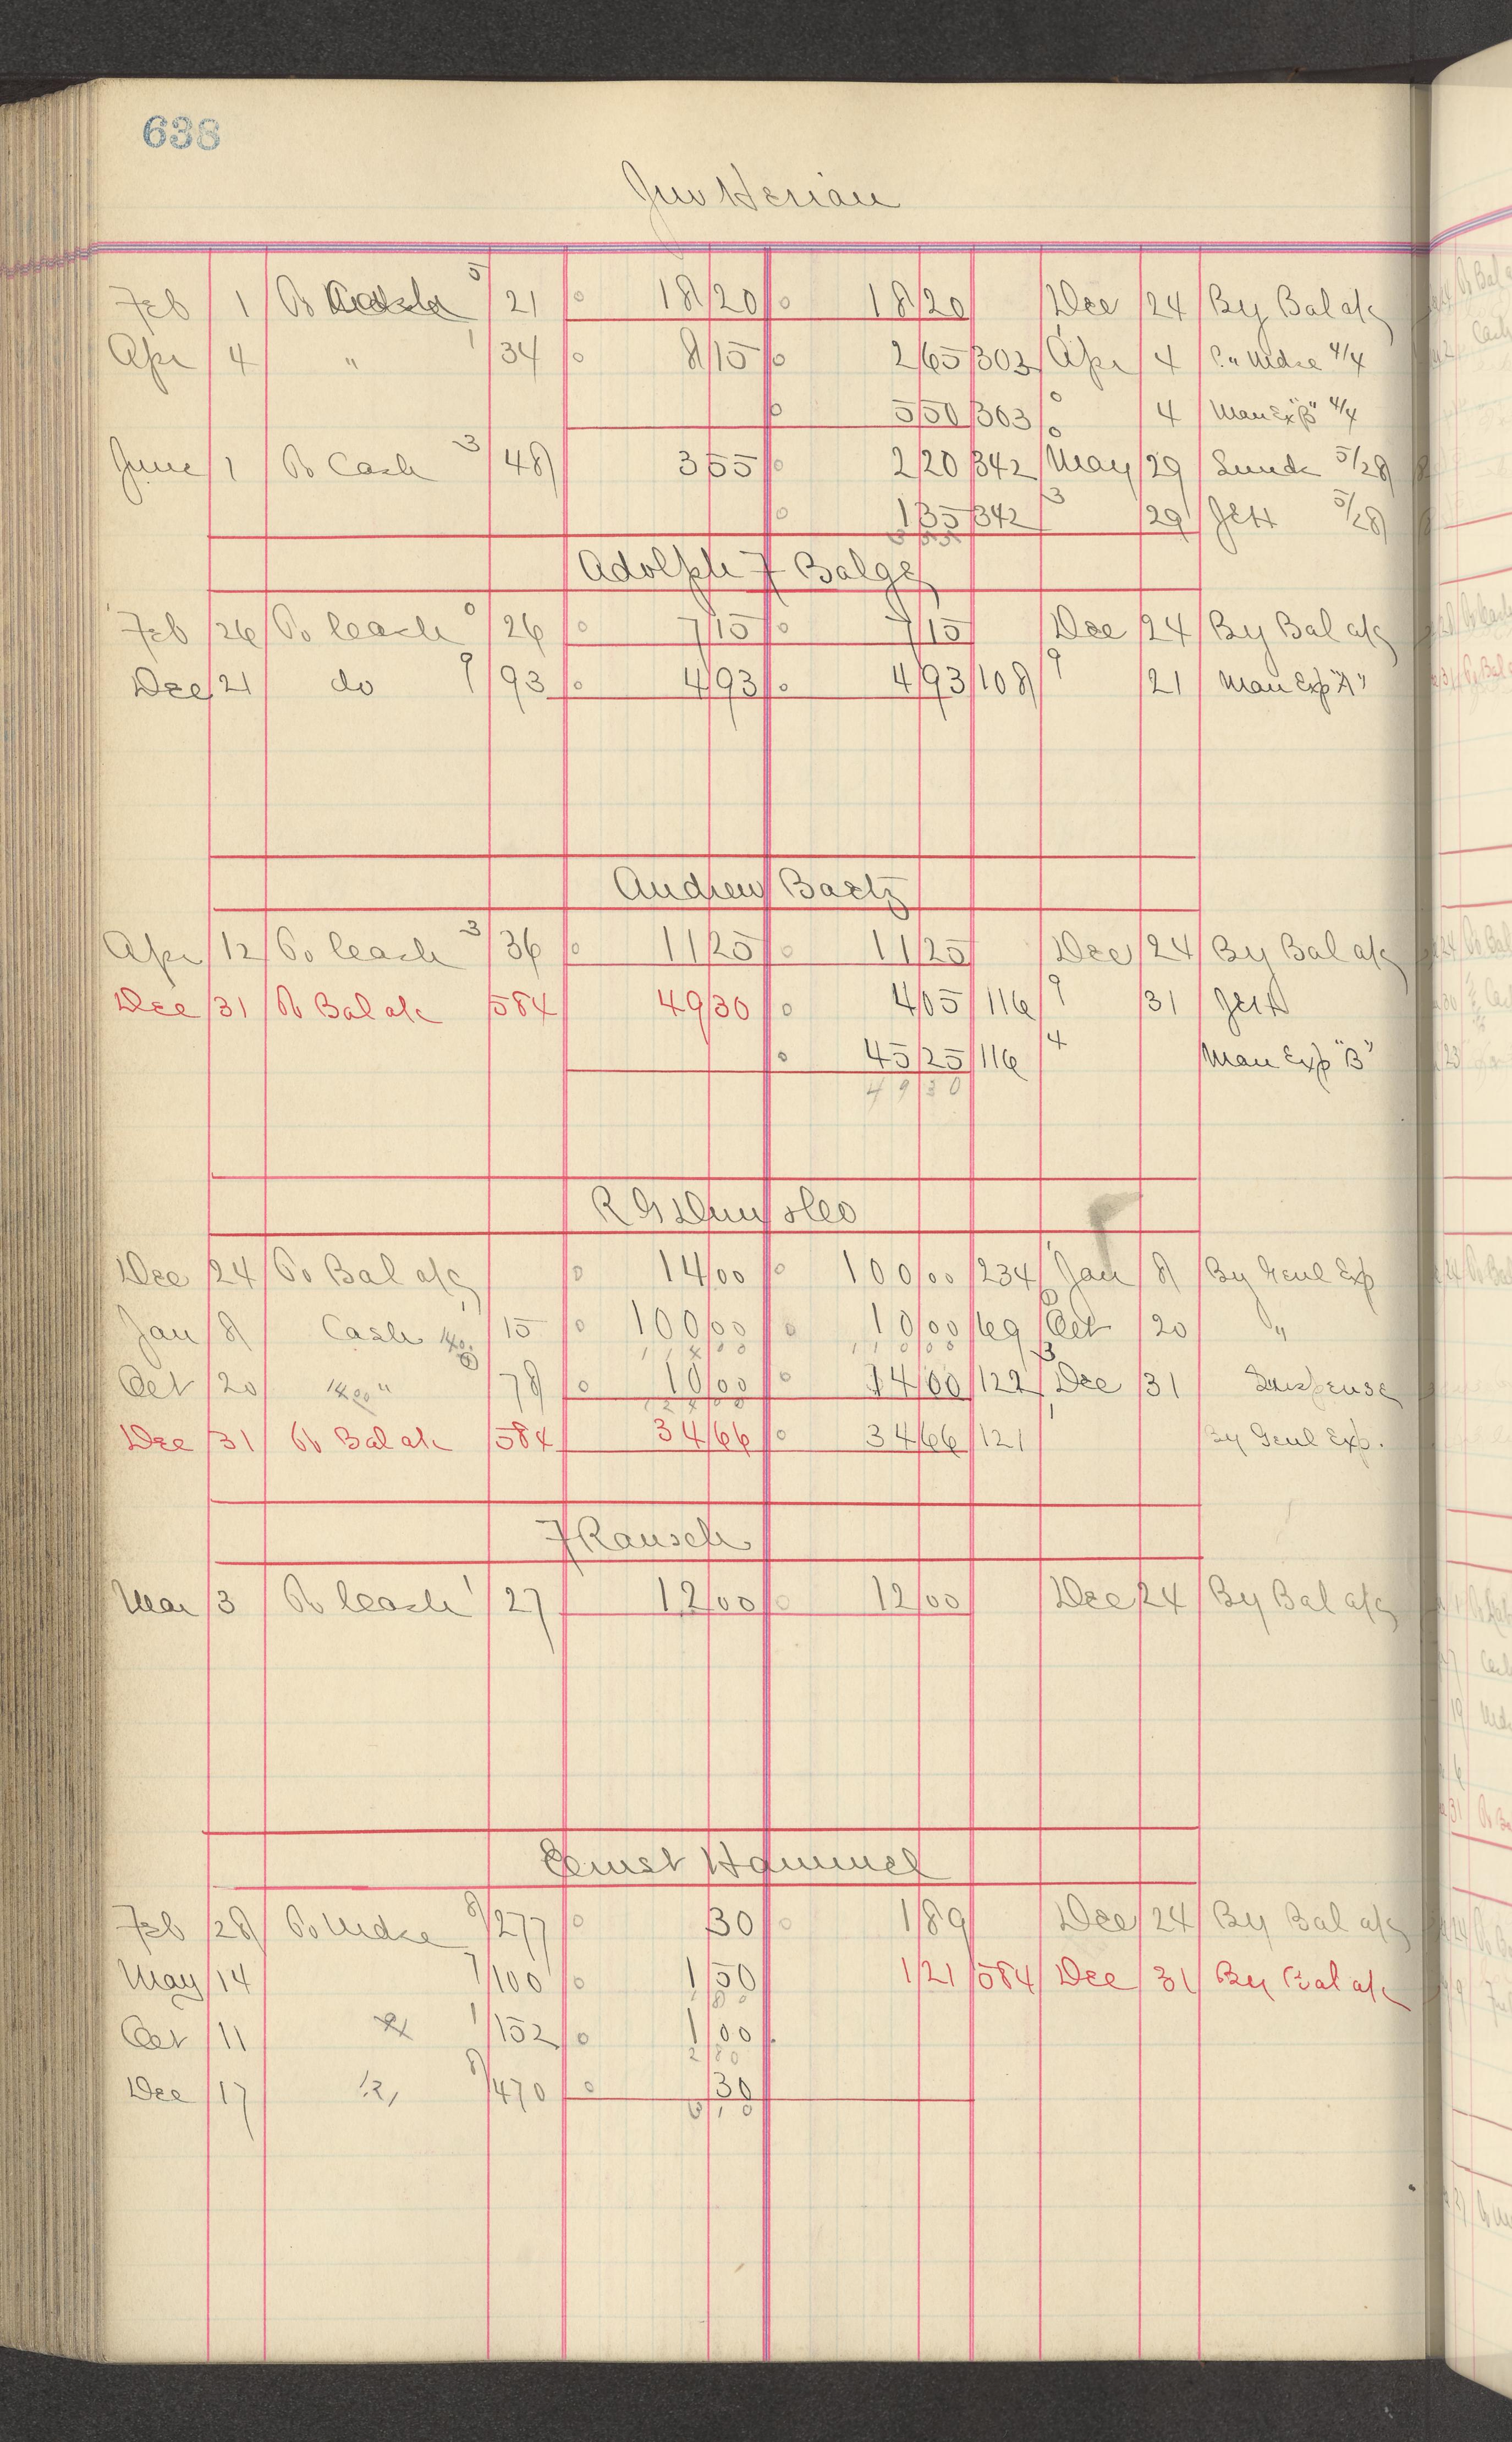 638
Jno Herian
Feb 1 To Cash 5 21 18 20 18 20 Dec 24 By Bal a/c
Apr 4 " 1 34 8 15 2 65 303 Apr 4 Mdse 4/4
5 50 303 4 Man Ex "B" 4/4
June 1 To Cash 3 48 3 55 2 20 342 May 29 Sunds 5/28
1 35 342 3 29 Jett 5/28
3 55
Adolph F Balge
Feb 26 To Cash 0 26 7 15 7 15 Dec 24 By Bal a/c
Dec 21 do 9 93 4 93 4 93 108 9 21 Man Exp "A"
Andrew Baetz
Apr 12 To Cash 3 36 11 25 11 25 Dec 24 By Bal a/c
Dec 31 To Bal a/c 584 49 30 4 05 116 9 31 Jett
45 25 116 4 Man Exp "B"
49 30
R G Dun & Co
Dec 24 To Bal a/c 14 00 100 00 234 Jan 8 By Genl Exp
Jan 8 Cash 1 15 100 00 10 00 69 Oct 20 "
114 00 110 00
Oct 20 14.00 " 78 10 00 14 00 122 3 Dec 31 Suspense
124 00
Dec 31 To Bal a/c 584 34 66 34 66 121 1 By Genl Exp.
F Rausch
Mar 3 To Cash 1 27 12 00 12 00 Dec 24 By Bal a/c
Ernst Hammel
Feb 28 To Mdse 8 277 30 1 89 Dec 24 By Bal a/c
May 14 7 100 1 50 1 21 584 Dec 31 By Bal a/c
1 80
Oct 11 1 152 1 00
2 80
Dec 17 8 470 30
3 10